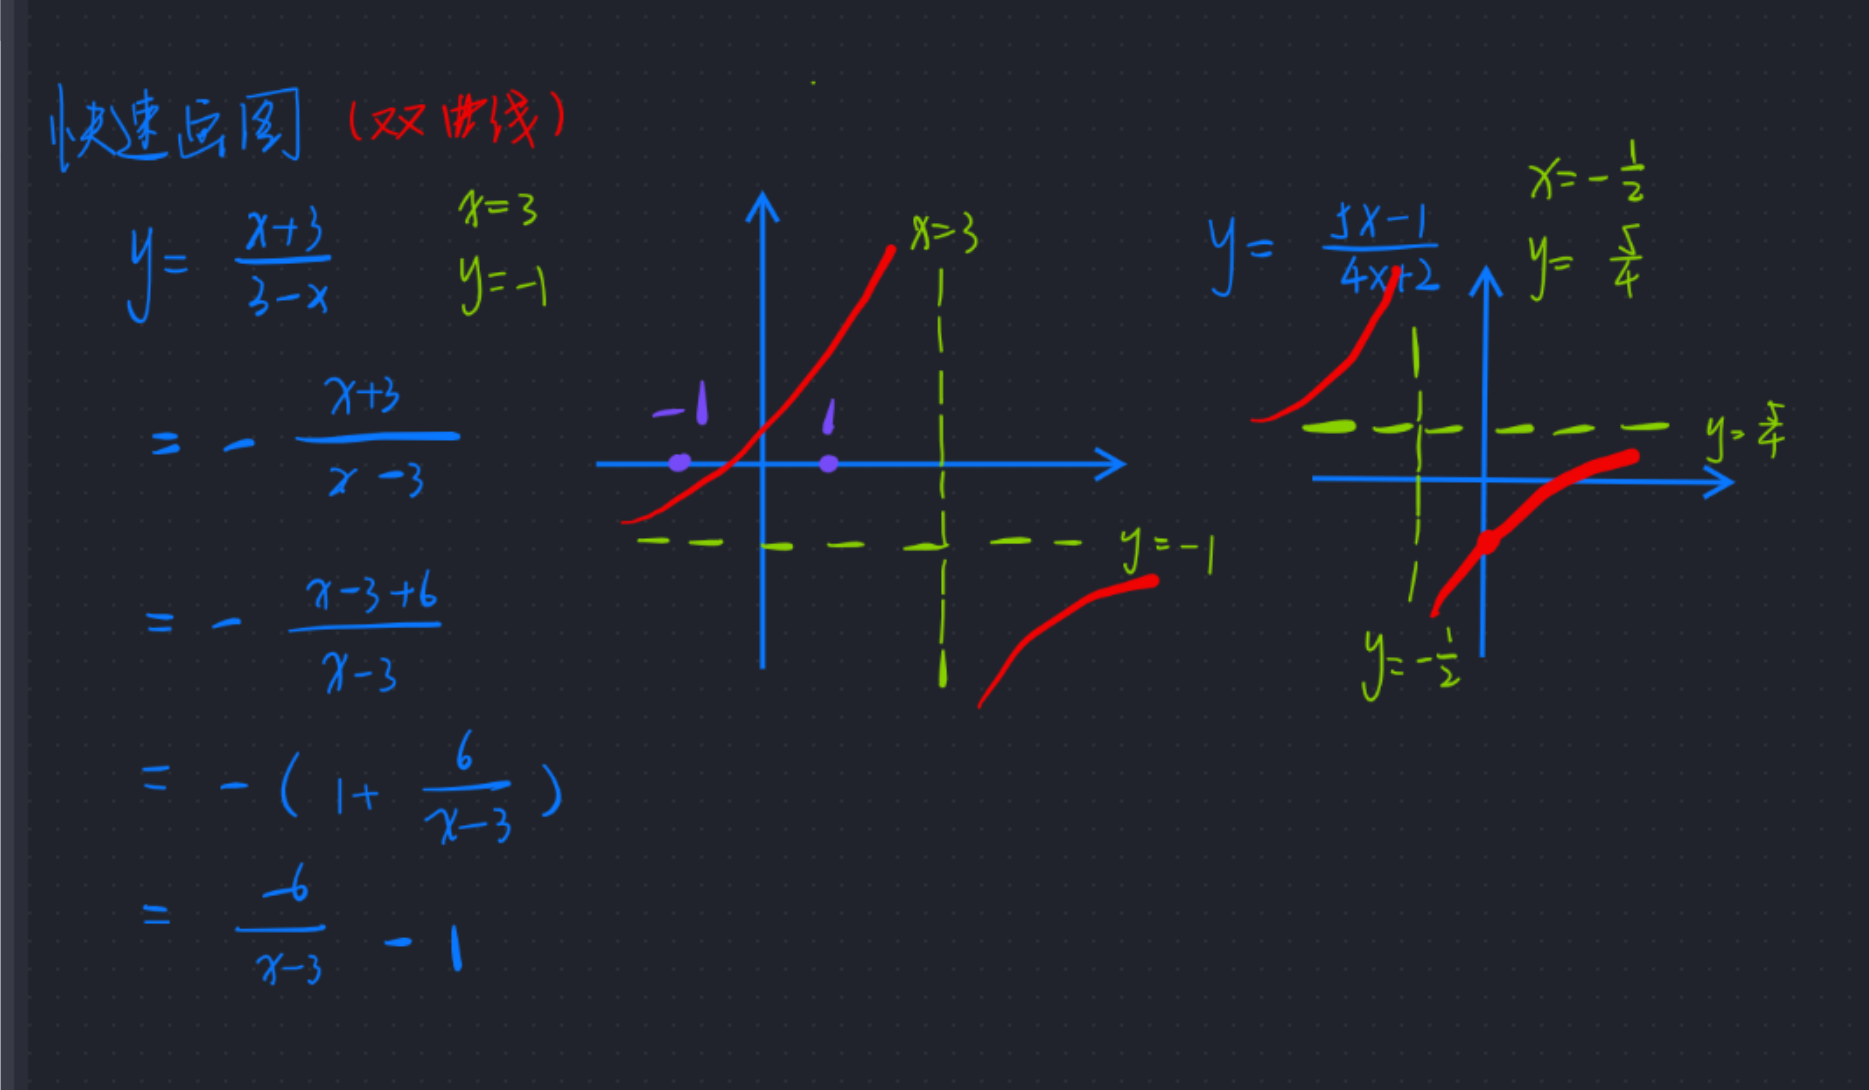 快速画图 (双曲线)
y = (x+3)/(3-x)
x=3
y=-1
= - (x+3)/(x-3)
= - (x-3+6)/(x-3)
= - (1+ 6/(x-3))
= -6/(x-3) - 1
x=3
-1
1
y=-1
y = (5x-1)/(4x+2)
x=-1/2
y=5/4
y=5/4
y=-1/2